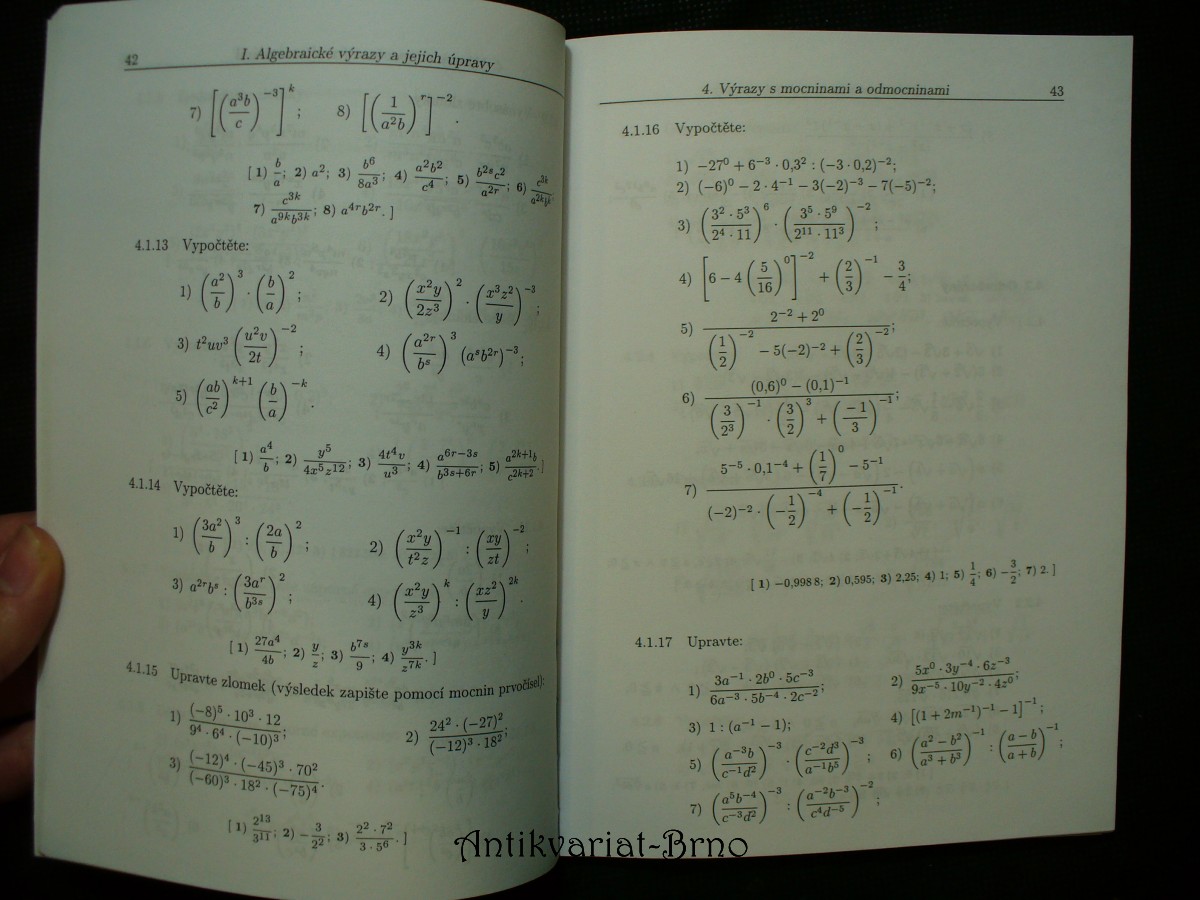 42 I. Algebraické výrazy a jejich úpravy
7) [((a³b)/c)⁻³]ᵏ; 8) [(1/(a²b))ʳ]⁻².
[ 1) b/a; 2) a²; 3) b⁶/(8a³); 4) a²b²/c⁴; 5) b²ˢc²/a²ʳ; 6)
7) c³ᵏ/(a⁹ᵏb³ᵏ); 8) a⁴ʳb²ʳ. ]
4.1.13 Vypočtěte:
1) (a²/b)³ · (b/a)²; 2) (x²y/(2z³))² · (x³z²/y)⁻³;
3) t²uv³ (u²v/(2t))⁻²; 4) (a²ʳ/bˢ)³ (aˢb²ʳ)⁻³;
5) (ab/c²)ᵏ⁺¹ (b/a)⁻ᵏ.
[ 1) a⁴/b; 2) y⁵/(4x⁵z¹²); 3) 4t⁴v/u³; 4) a⁶ʳ⁻³ˢ/b³ˢ⁺⁶ʳ; 5) a²ᵏ⁺¹b/c²ᵏ⁺². ]
4.1.14 Vypočtěte:
1) (3a²/b)³ : (2a/b)²; 2) (x²y/(t²z))⁻¹ : (xy/(zt))⁻²;
3) a²ʳbˢ : (3aʳ/b³ˢ)²; 4) (x²y/z³)ᵏ : (xz²/y)²ᵏ.
[ 1) 27a⁴/(4b); 2) y/z; 3) b⁷ˢ/9; 4) y³ᵏ/z⁷ᵏ. ]
4.1.15 Upravte zlomek (výsledek zapište pomocí mocnin prvočísel):
1) ((−8)⁵ · 10³ · 12)/(9⁴ · 6⁴ · (−10)³); 2) (24² · (−27)²)/((−12)³ · 18²);
3) ((−12)⁴ · (−45)³ · 70²)/((−60)³ · 18² · (−75)⁴).
[ 1) 2¹³/3¹¹; 2) −3/2²; 3) (2² · 7²)/(3 · 5⁶). ]
4. Výrazy s mocninami a odmocninami 43
4.1.16 Vypočtěte:
1) −27⁰ + 6⁻³ · 0,3² : (−3 · 0,2)⁻²;
2) (−6)⁰ − 2 · 4⁻¹ − 3(−2)⁻³ − 7(−5)⁻²;
3) ((3² · 5³)/(2⁴ · 11))⁶ · ((3⁵ · 5⁹)/(2¹¹ · 11³))⁻²;
4) [6 − 4 (5/16)⁰]⁻² + (2/3)⁻¹ − 3/4;
5) (2⁻² + 2⁰)/((1/2)⁻² − 5(−2)⁻² + (2/3)⁻²);
6) ((0,6)⁰ − (0,1)⁻¹)/((3/2³)⁻¹ · (3/2)³ + (−1/3)⁻¹);
7) (5⁻⁵ · 0,1⁻⁴ + (1/7)⁰ − 5⁻¹)/((−2)⁻² · (−1/2)⁻⁴ + (−1/2)⁻¹).
[ 1) −0,998 8; 2) 0,595; 3) 2,25; 4) 1; 5) 1/4; 6) −3/2; 7) 2. ]
4.1.17 Upravte:
1) (3a⁻¹ · 2b⁰ · 5c⁻³)/(6a⁻³ · 5b⁻⁴ · 2c⁻²); 2) (5x⁰ · 3y⁻⁴ · 6z⁻³)/(9x⁻⁵ · 10y⁻² · 4z⁰);
3) 1 : (a⁻¹ − 1); 4) [(1 + 2m⁻¹)⁻¹ − 1]⁻¹;
5) (a⁻³b/(c⁻¹d²))⁻³ · (c⁻²d³/(a⁻¹b⁵))⁻³; 6) ((a² − b²)/(a³ + b³))⁻¹ : ((a − b)/(a + b))⁻¹;
7) (a⁵b⁻⁴/(c⁻³d²))⁻³ : (a⁻²b⁻³/(c⁴d⁻⁵))⁻²;
Antikvariat-Brno